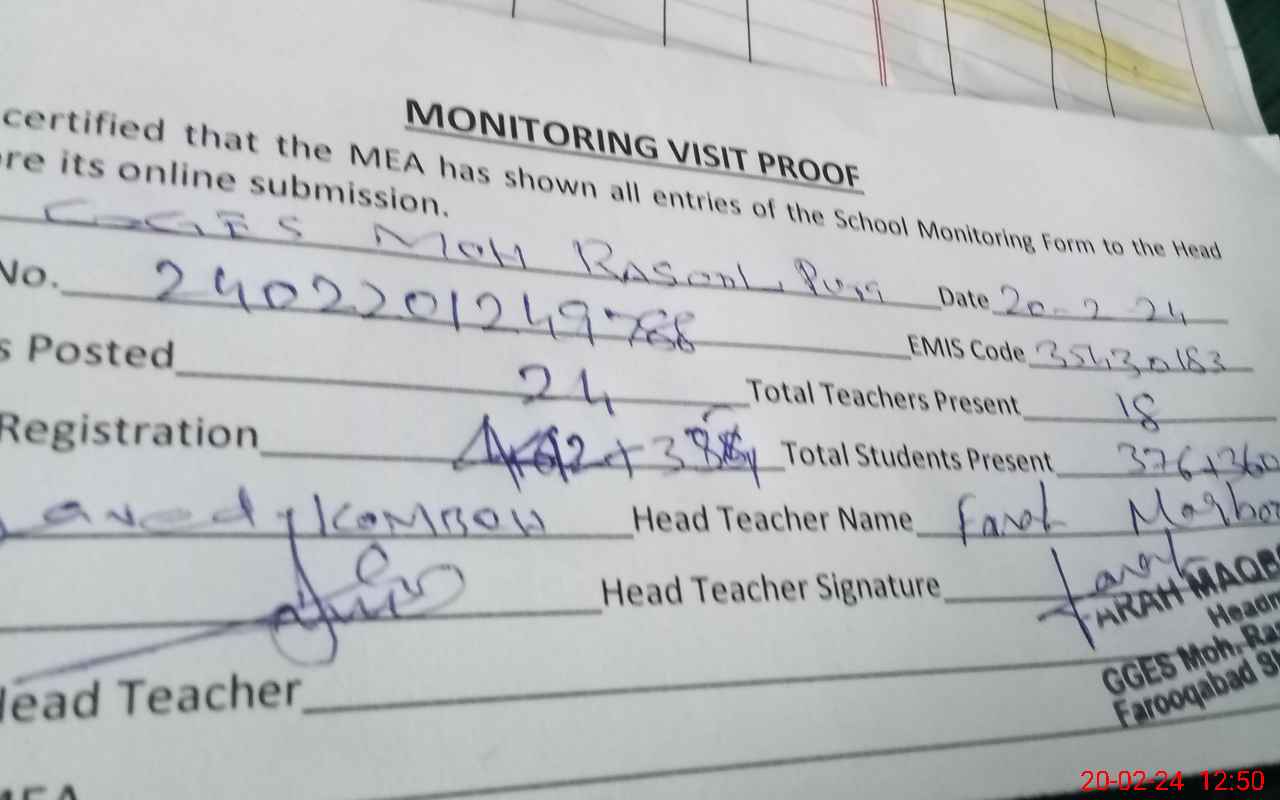 MONITORING VISIT PROOF
certified that the MEA has shown all entries of the School Monitoring Form to the Head
its online submission.
GGES MOH RASOOL PURA Date 20-2-24
No. 2402201249788 EMIS Code 35430183
Posted 24 Total Teachers Present 18
Registration Total Students Present 376+360
KOMBOH Head Teacher Name Farah
Head Teacher Signature Farah
FARAH MAQB
Head Teacher
GGES Moh. Ra
Farooqabad
20-02-24 12:50